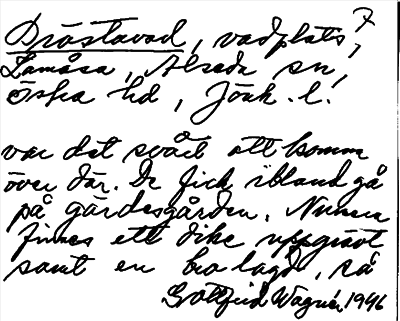 Dröstavad, vadplats, 7
Lamåsa, Alseda sn,
Östra hd, Jönk. l.
var det svårt att komma
över där. De fick ibland gå
på gärdesgården. Numera
finnes ett dike uppgrävt
samt en bro lagd, så
Gottfrid Wagnér 1946